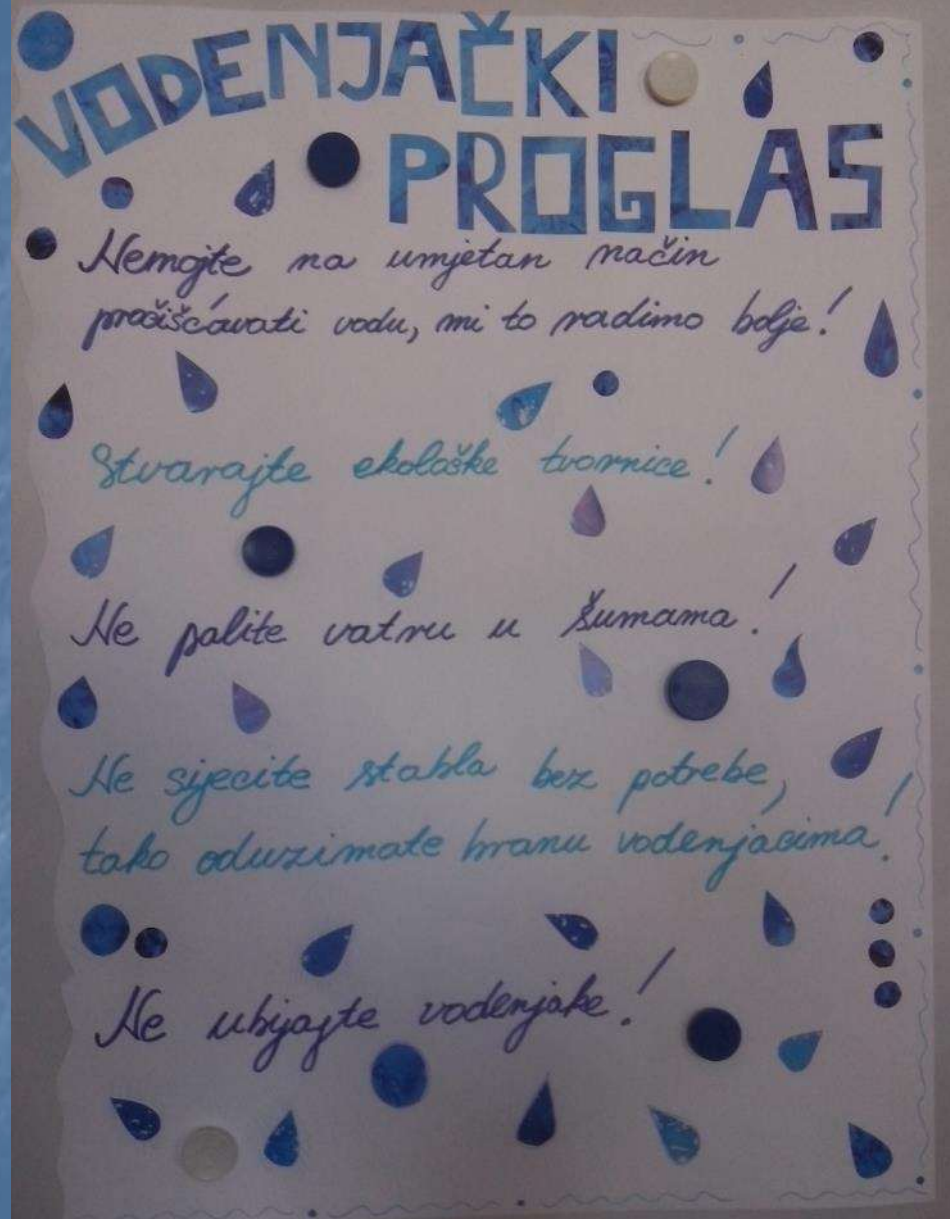 VODENJAČKI
PROGLAS
Nemojte na umjetan način
pročišćavati vodu, mi to radimo bolje!
Stvarajte ekološke tvornice!
Ne palite vatru u šumama!
Ne sijecite stabla bez potrebe,
tako oduzimate hranu vodenjacima!
Ne ubijajte vodenjake!